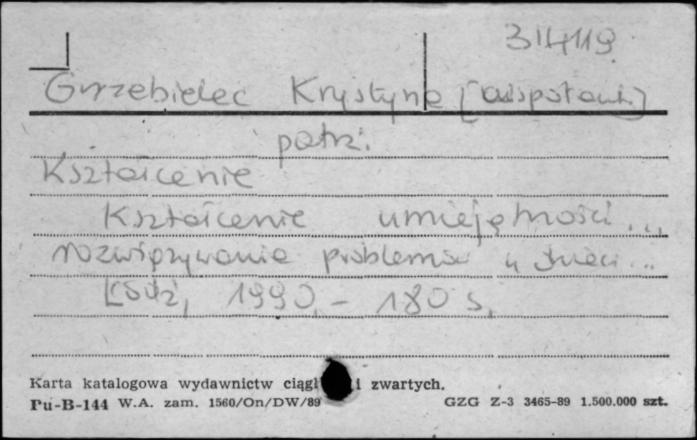 314119
Grzebielec Krystyna [współaut.]
patrz:
Kształcenie
Kształcenie umiejętności...
rozwiązywania problemów u dzieci...
Łódź, 1990.- 180 s.
Karta katalogowa wydawnictw ciągł i zwartych.
Pu-B-144 W.A. zam. 1560/On/DW/89 GZG Z-3 3465-89 1.500.000 szt.